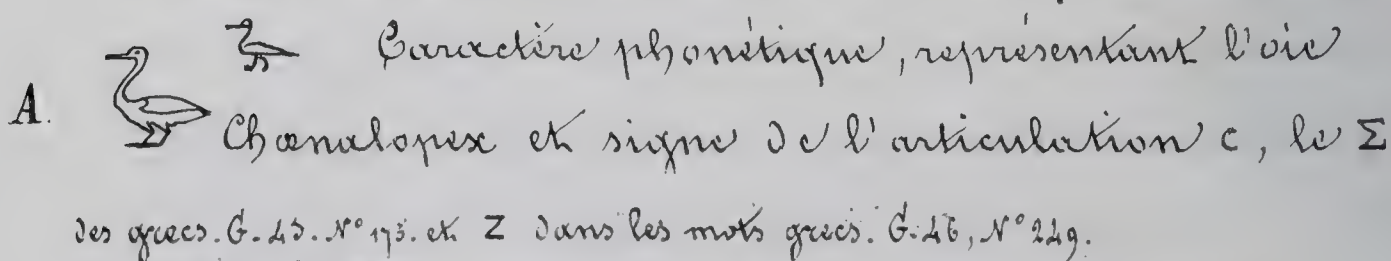 Caractère phonétique, représentant l'oie
A. Chœnalopex et signe de l'articulation c, le Σ
des grecs. G. 43. N° 173. et Z dans les mots grecs. G. 46, N° 249.